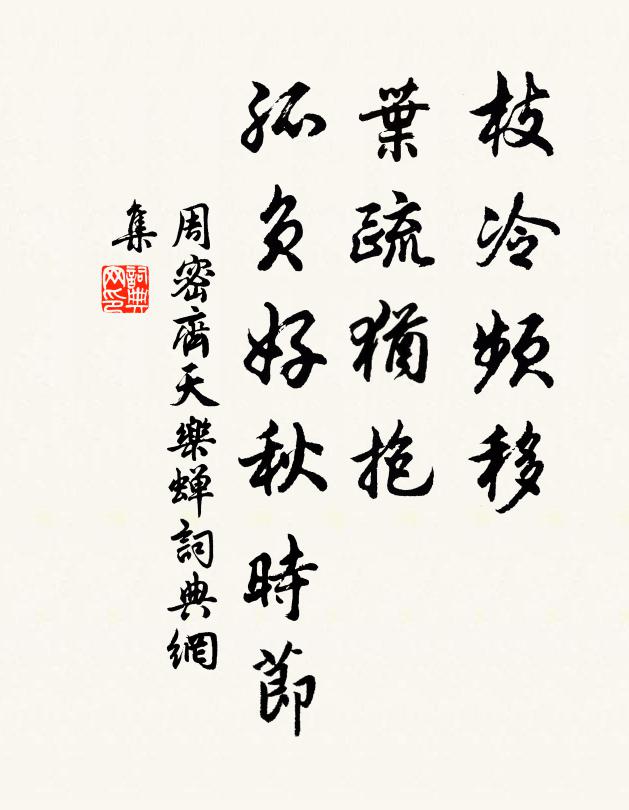 枝冷頻移
葉疏猶抱
孤負好秋時節
周密齊天樂蝉詞典網
集
詞典網印